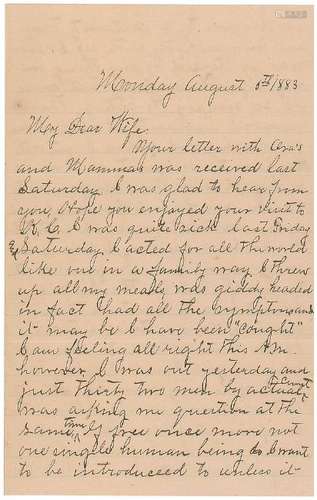 Monday August 6th/1883
My Dear Wife.
Your letter with Ora's
and Mammas was received last
Saturday. I was glad to hear from
you, Hope you enjoyed your visit to
K.C. I was quite sick last Friday
& Saturday. I acted for all the world
like one in a family way. I threw
up all my meals, was giddy headed
in fact had all the symptoms and
it may be I have been "caught"
I am feeling all right this A.M.
however I was out yesterday and
just thirty two men by actual count
was asking me question at the
same time, If free once more not
one single human being do I want
to be introduced to unless it